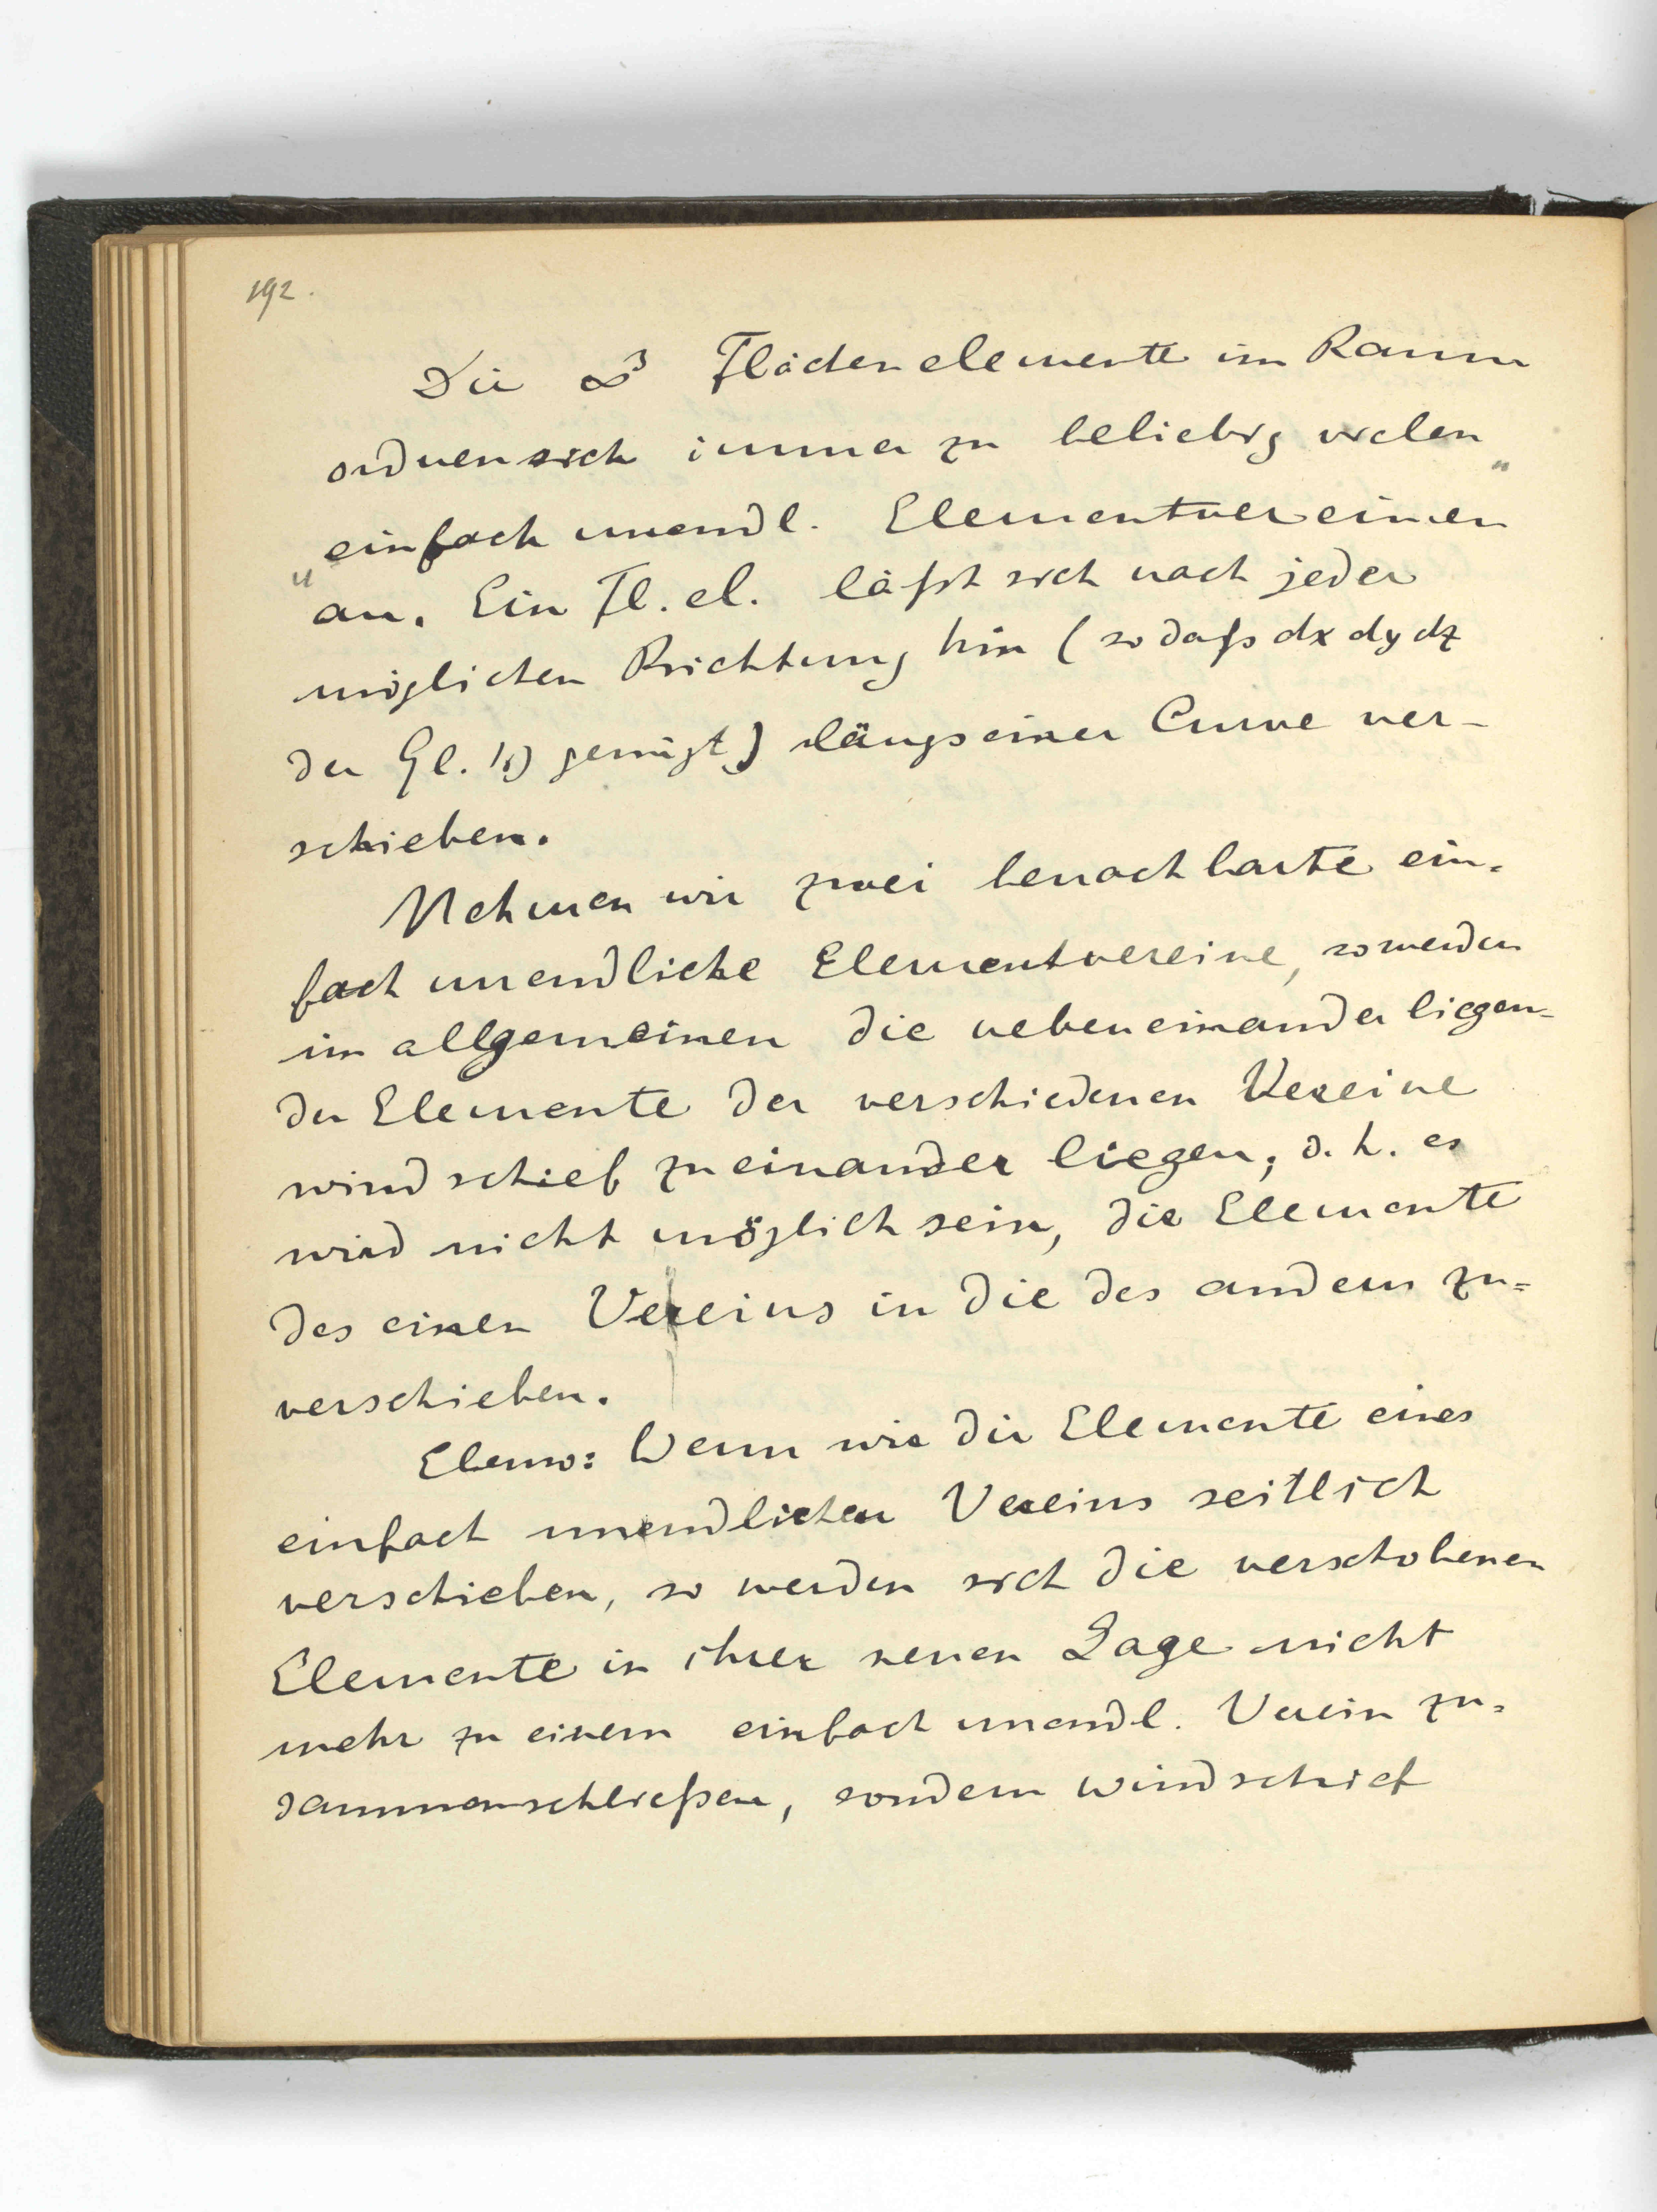 192.
Die ∞³ Flächenelemente im Raum
ordnen sich immer zu beliebig vielen
„einfach unendl. Elementvereinen"
an. Ein Fl. el. läßt sich nach jeder
möglichen Richtung hin (sodaß dx dy dz
der Gl. 1) genügt) längs einer Curve ver-
schieben.
Nehmen wir zwei benachbarte ein-
fach unendliche Elementvereine, so werden
im allgemeinen die nebeneinander liegen-
den Elemente der verschiedenen Vereine
windschief zueinander liegen; d. h. es
wird nicht möglich sein, die Elemente
des einen Vereins in die des andern zu=
verschieben.
Ebenso: Wenn wir die Elemente eines
einfach unendlichen Vereins seitlich
verschieben, so werden sich die verschobenen
Elemente in ihrer neuen Lage nicht
mehr zu einem einfach unendl. Verein zu=
sammenschließen, sondern windschief